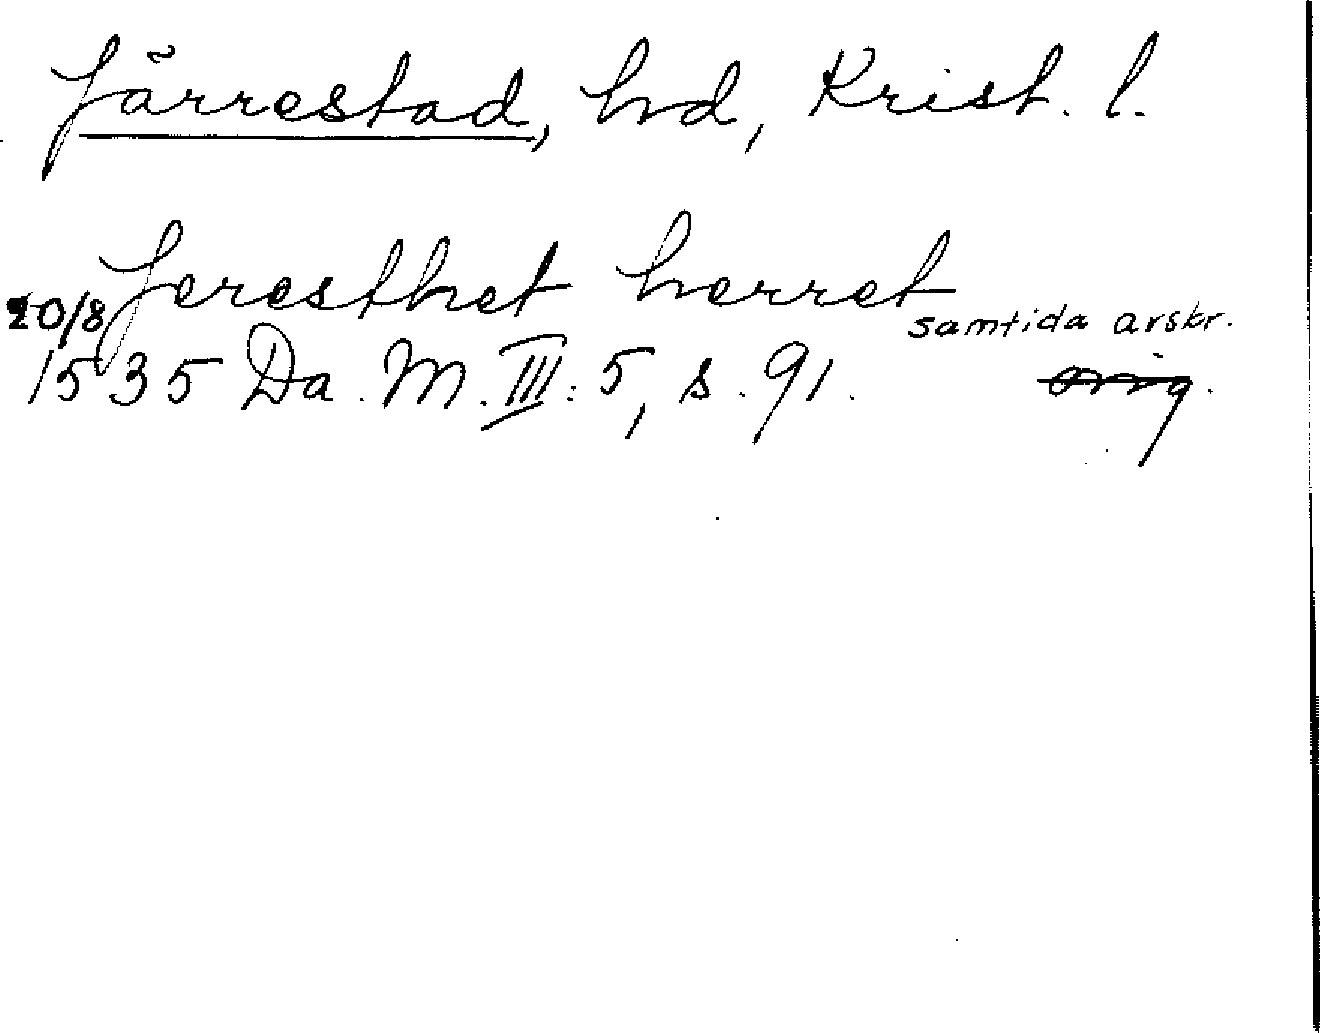 Järrestad, hd, Krist. l.
Jeresthet herret
20/8 samtida avskr.
1535 Da. M. III: 5, s. 91. orig.